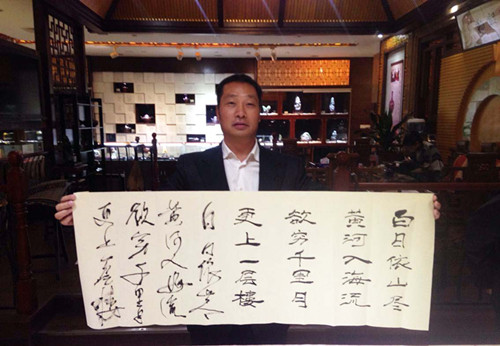 白日依山尽
黄河入海流
欲穷千里目
更上一层樓
白日依山尽
黄河入海流
欲穷千里目
更上一层樓